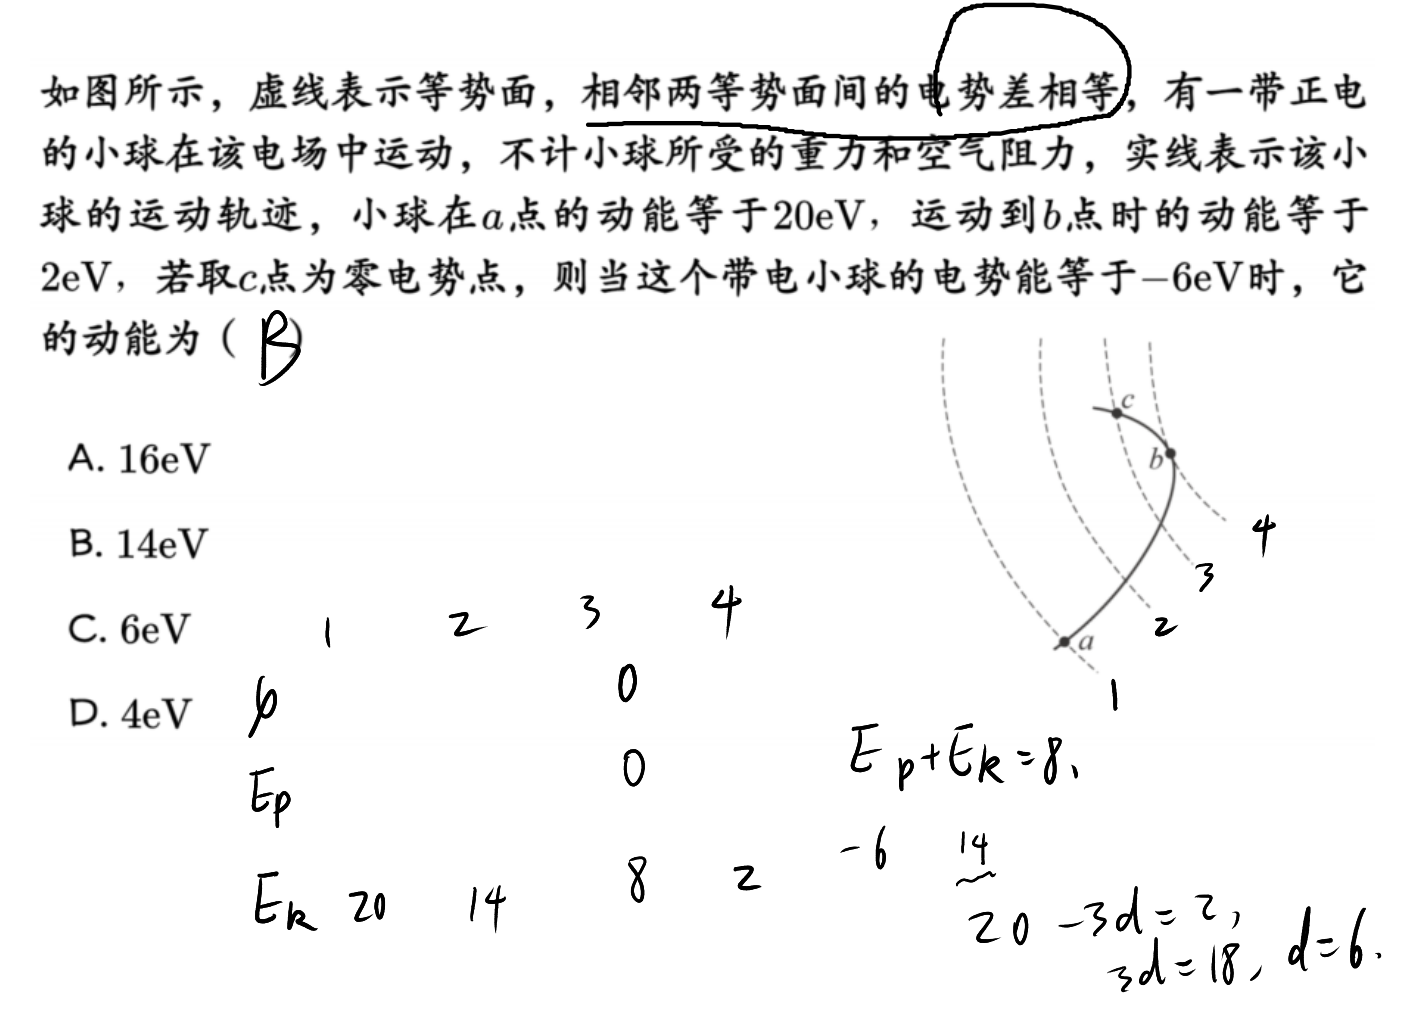 如图所示，虚线表示等势面，相邻两等势面间的电势差相等，有一带正电
的小球在该电场中运动，不计小球所受的重力和空气阻力，实线表示该小
球的运动轨迹，小球在a点的动能等于20eV，运动到b点时的动能等于
2eV，若取c点为零电势点，则当这个带电小球的电势能等于−6eV时，它
的动能为（B）
A. 16eV
B. 14eV
C. 6eV
D. 4eV
c
b
a
4
3
2
1
1 2 3 4
φ 0
Ep 0
Ek 20 14 8 2
Ep+Ek=8、
-6 14
20-3d=2,
3d=18, d=6.